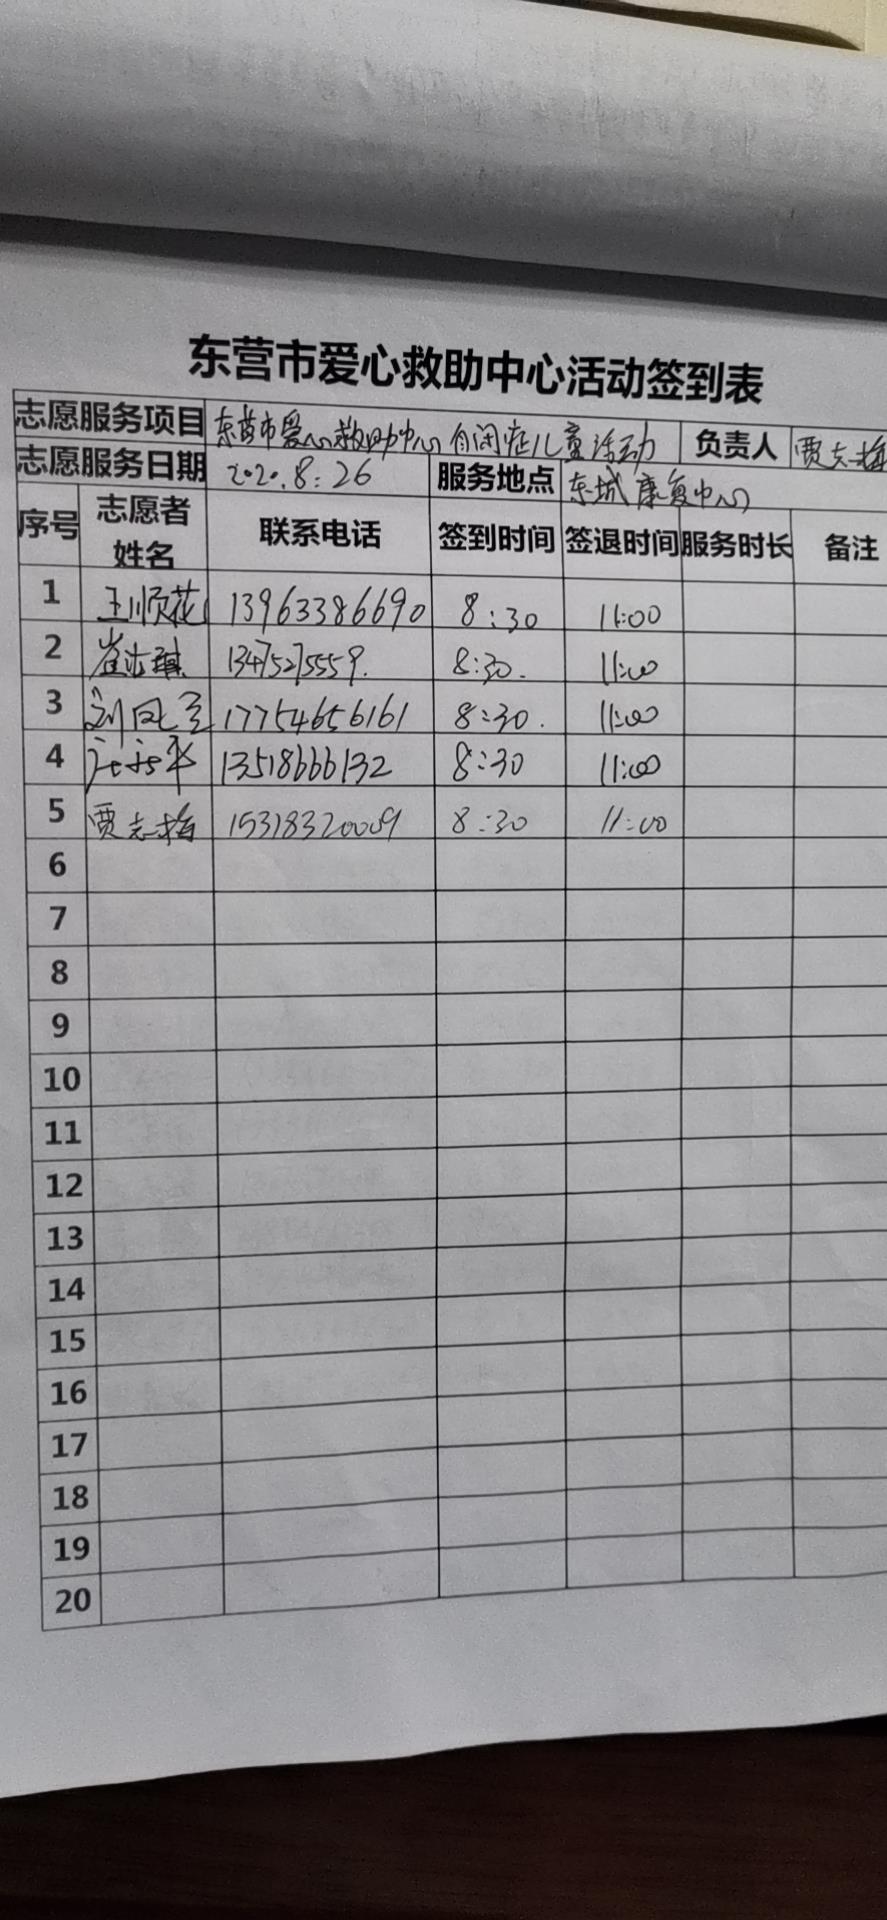 东营市爱心救助中心活动签到表
志愿服务项目 东营市爱心救助中心自闭症儿童活动 负责人 贾志梅
志愿服务日期 2020.8:26 服务地点 东城康复中心
序号 志愿者姓名 联系电话 签到时间 签退时间 服务时长 备注
1 王顺花 13963386690 8:30 11:00
2 崔 琪 13475275559. 8:30. 11:00
3 刘凤 17754656161 8:30. 11:00
4 13518666132 8:30 11:00
5 贾志梅 15318320009 8:30 11:00
6
7
8
9
10
11
12
13
14
15
16
17
18
19
20